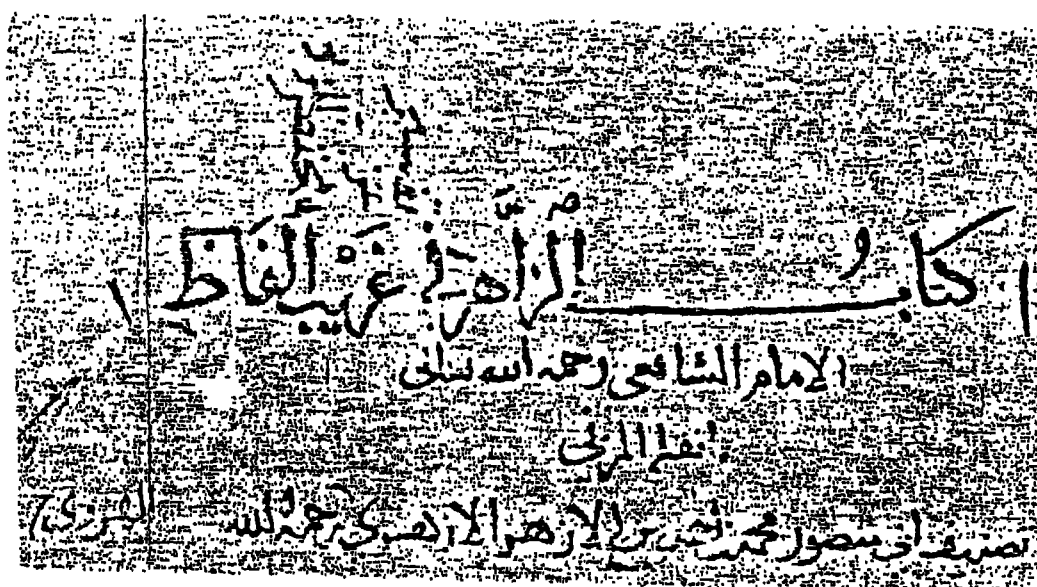 كتاب الزاهر في غريب ألفاظ
الإمام الشافعي رحمه الله تعالى
نقل المزني
تصنيف أبي منصور محمد بن أحمد بن الأزهر الأزهري رحمه الله